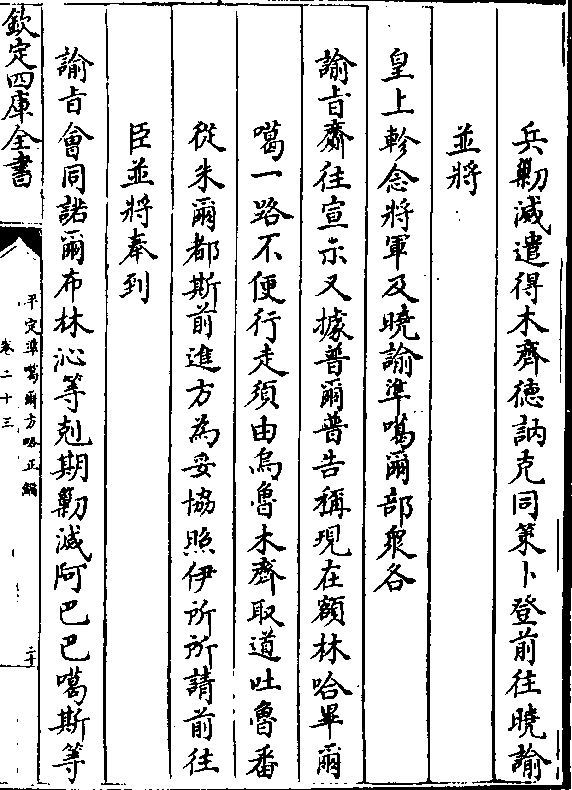 兵勦滅遣得木齊德訥克同策卜登前往曉諭
並將
皇上軫念將軍及曉諭準噶爾部衆各
諭㫖齎往宣示又據普爾普告稱現在額林哈畢爾
噶一路不便行走須由烏魯木齊取道吐魯番
從朱爾都斯前進方為妥協照伊所請前往
臣並將奉到
諭㫖會同諾爾布林沁等剋期勦滅阿巴巴噶斯等
欽定四庫全書
平定準噶爾方略正編
卷二十三
二十